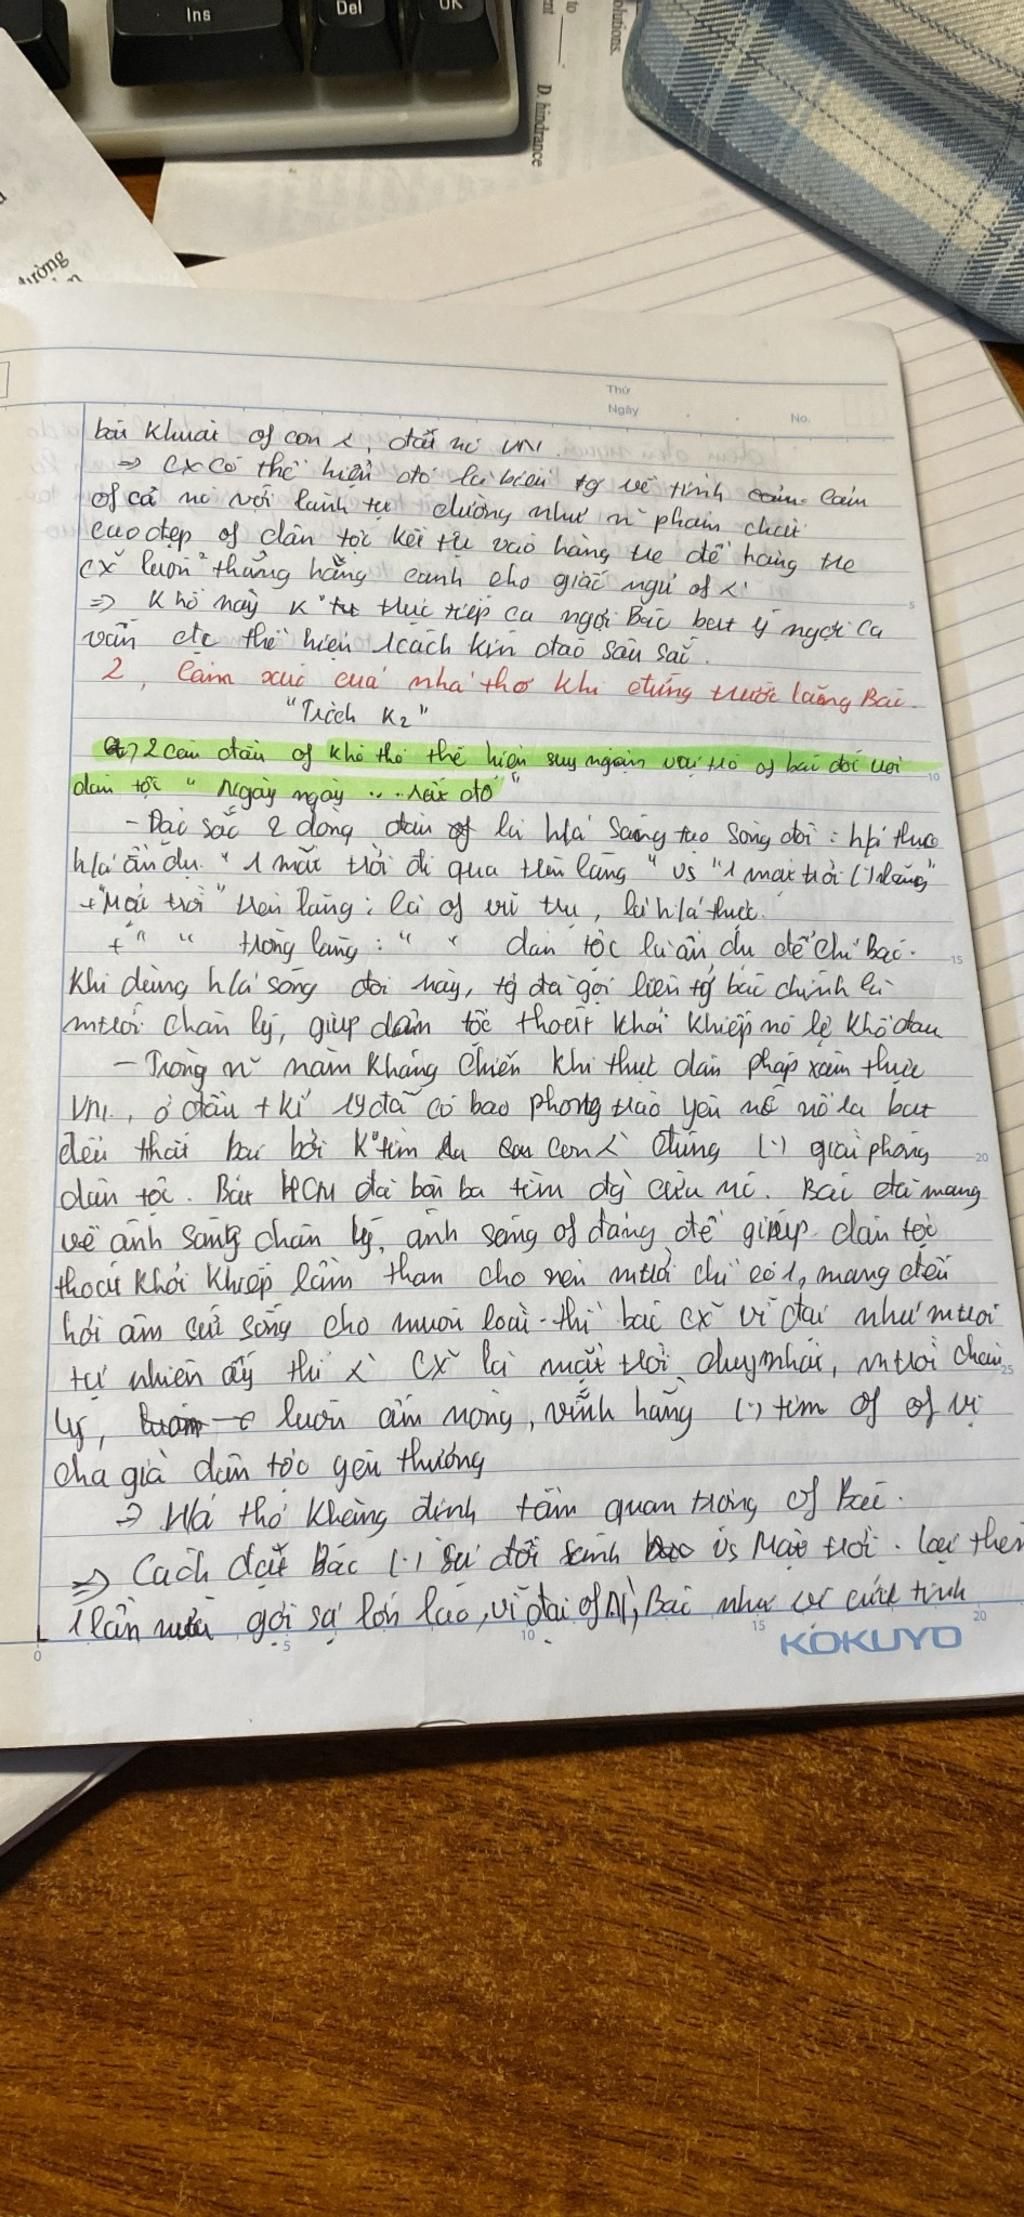 Ins
Del
to
ent
D. hindrance
olutions.
đường
Thứ
Ngày
No.
of con , đất nc VN.
=> cx có thể hiểu đó là biểu tg về tình cảm
of cả nc với lãnh tụ dường như n~ phẩm chất
cao đẹp of dân tộc kết tụ vào hàng tre để hàng tre
cx luôn thẳng hàng canh cho giấc ngủ of
=> Khổ này K° trực tiếp ca ngợi Bác but ý ngợi ca
vẫn đc thể hiện 1 cách kín đáo sâu sắc.
2, Cảm xúc của nhà thơ khi đứng trước lăng Bác.
"Trích K2"
a) 2 câu đầu of khổ thơ thể hiện suy ngẫm vai trò of bác đối với
dân tộc " Ngày ngày ... rất đỏ "
- Đặc sắc 2 dòng đầu of là h/á sáng tạo sóng đôi : h/á thực
h/á ẩn dụ. " 1 mặt trời đi qua trên lăng " vs "1 mặt trời (.) lăng"
+ "Mặt trời" trên lăng : là of vũ trụ, là h/á thực.
+ " " trong lăng : " " dân tộc là ẩn dụ để chỉ Bác.
Khi dùng h/á sóng đôi này, tg đã gợi liên tg bác chính là
mtrời chân lý, giúp dân tộc thoát khỏi kiếp nô lệ khổ đau
- Trong n~ năm kháng chiến khi thực dân pháp xâm
VN, ở đầu t.kỉ 19 đã có bao phong trào yêu nc nổ ra but
đều thất bại bởi K° tìm ra con đúng (.) giải phóng
dân tộc. Bác HCM đã bôn ba tìm đg cứu nc. Bác đã mang
về ánh sáng chân lý, ánh sáng of đảng để giúp dân tộc
thoát khỏi khiếp lầm than cho nên mtrời chỉ có 1, mang đến
hơi ấm sứ sống cho muôn loài thì bác cx vĩ đại như mtrời
tự nhiên ấy thì cx là mặt trời duy nhất, mtrời chân
lý, luôn ấm nóng, vĩnh hằng (.) tim of of vị
cha già dân tộc yêu thương
=> Nhà thơ khẳng định tầm quan trọng of Bác.
=> Cách đặt Bác (.) sự đối sánh vs Mặt trời. lại thêm
1 lần nữa gợi sự lớn lao, vĩ đại of , Bác như vị cứu tinh
5
10
15
20
25
0
5
10
15
20
KOKUYO